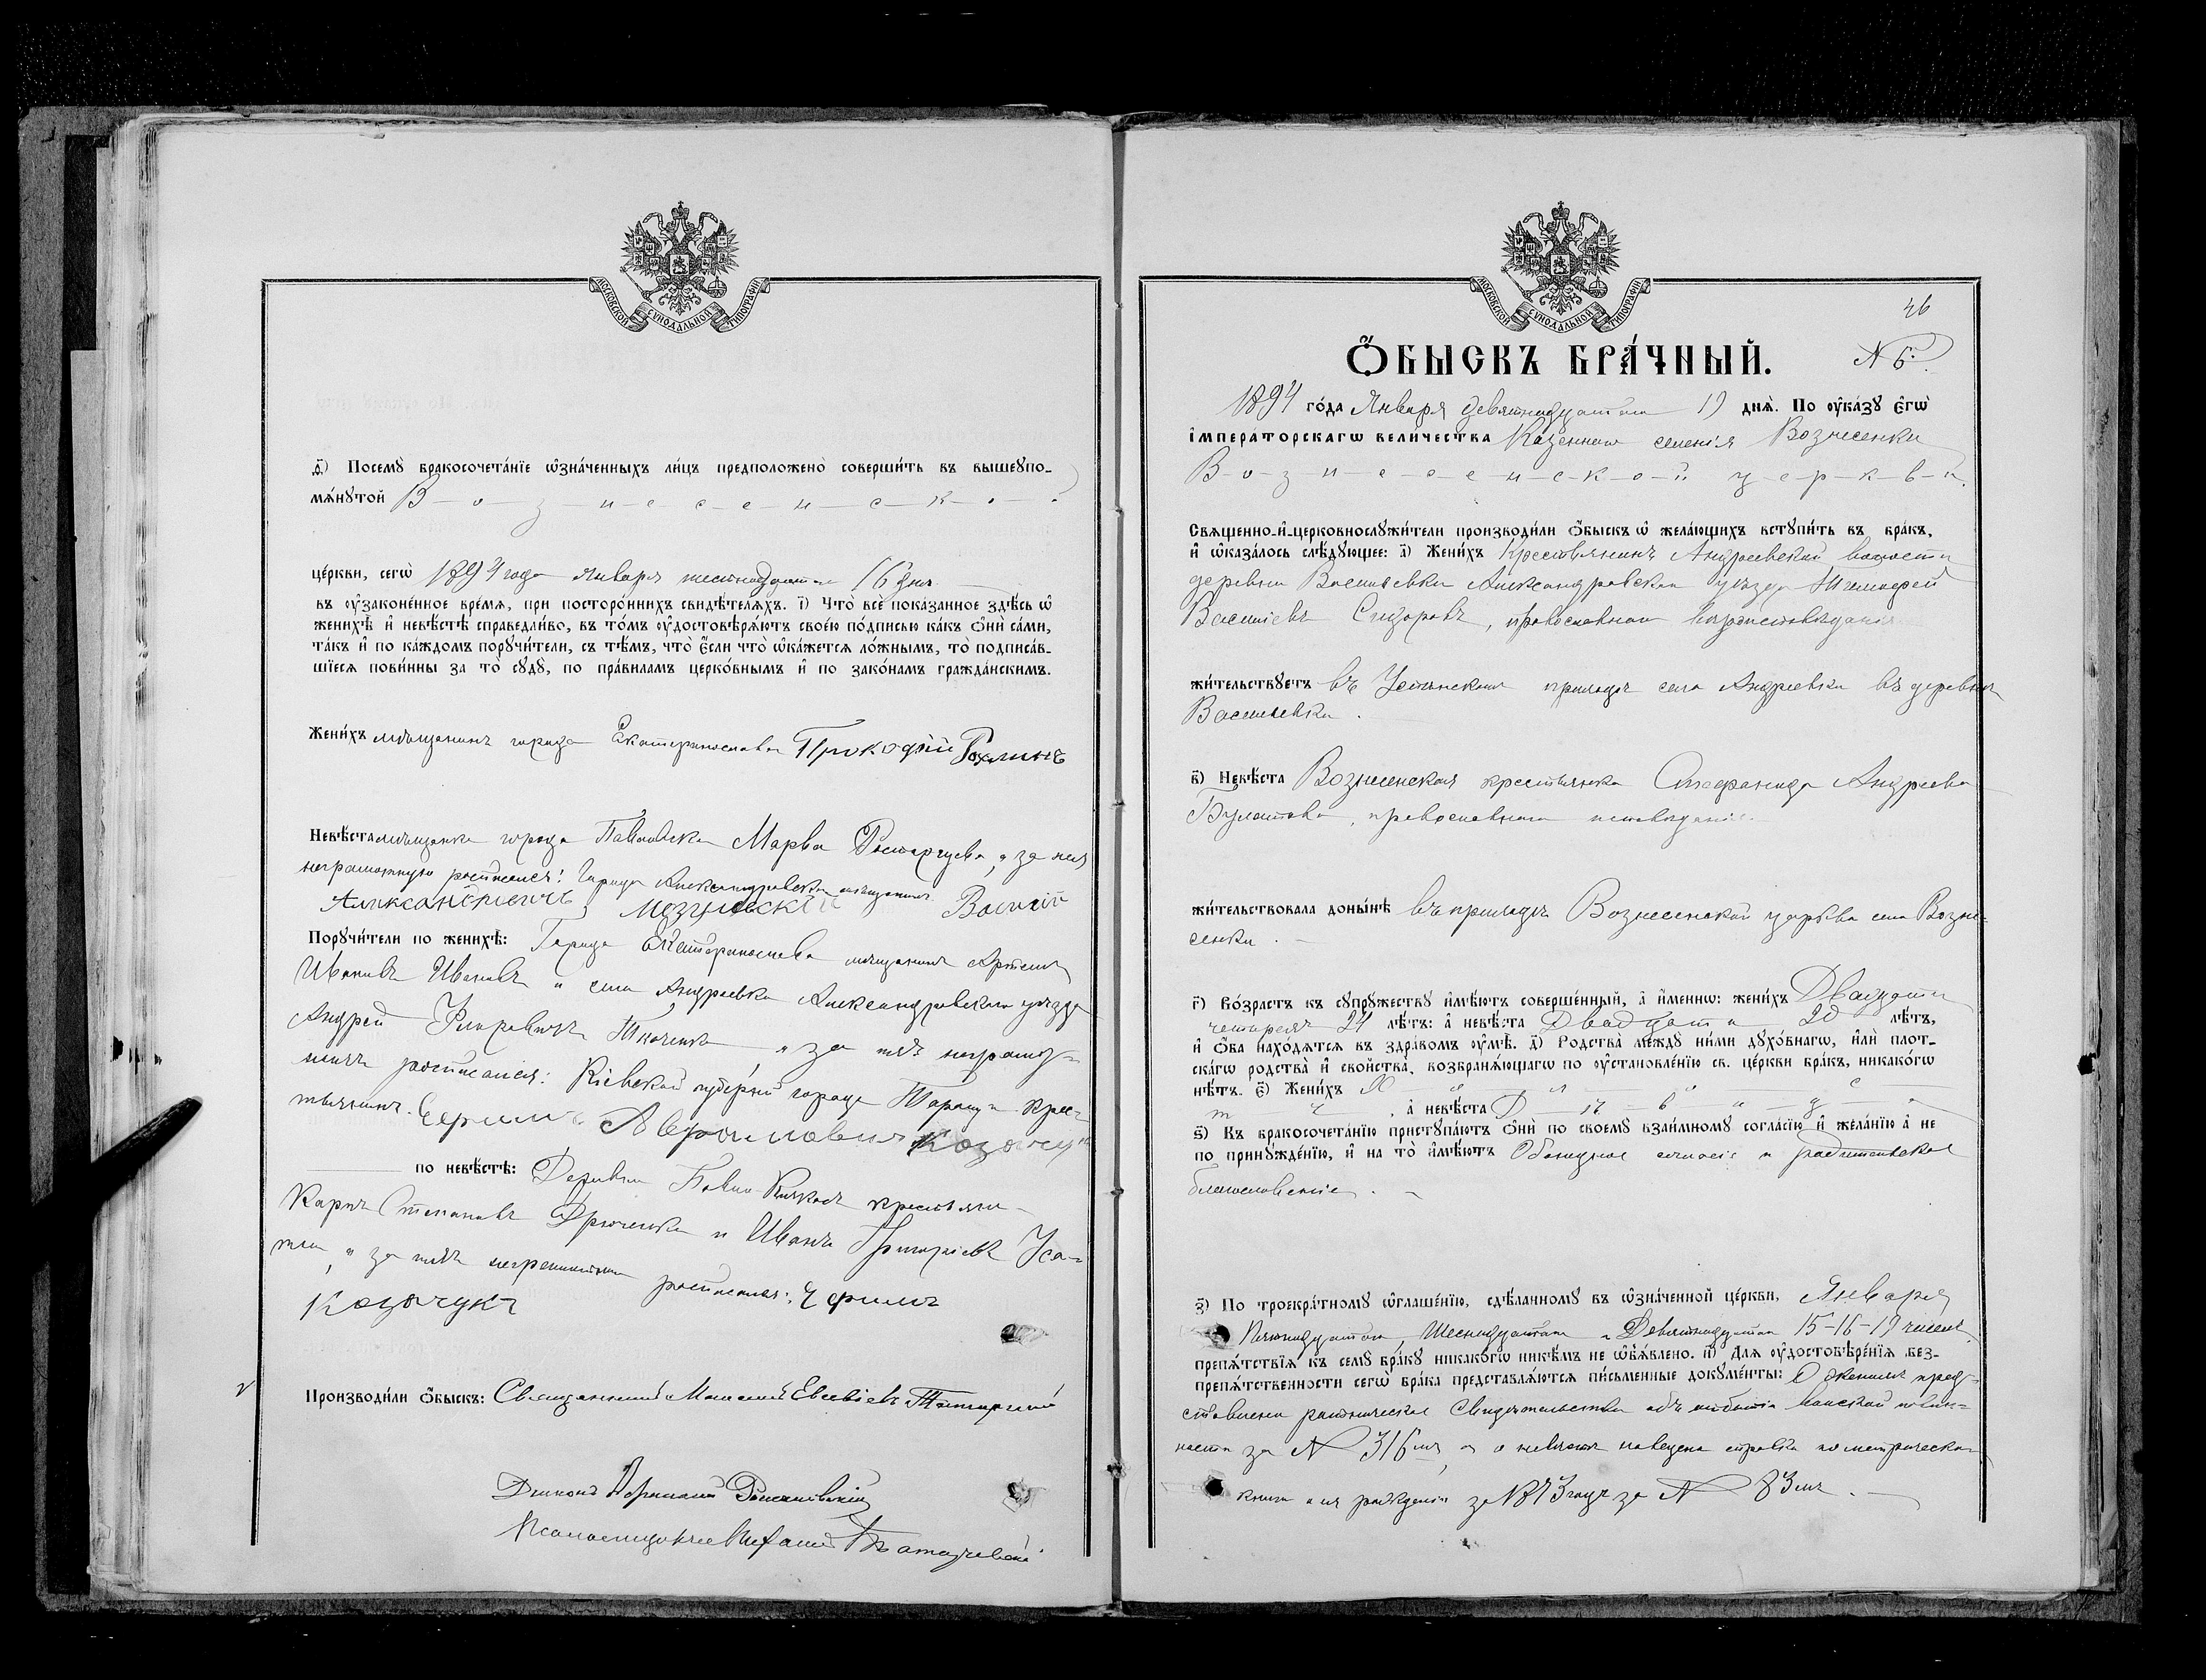 МОСКОВСКОЙ СѴНОДАЛЬНОЙ ТИПОГРАФІИ
ѳ҃) Посемꙋ̀ бракосочета́нїе ѡ҆зна́ченныхъ ли́цъ предположено̀ соверши́ть въ вышеꙋпо-
мѧ́нꙋтой В-о-з-н-е-с-е-н-с-к-о-
це́ркви, сегѡ̀ 1894 года Января шестнадцатаго 16 дня
въ ᲂу҆законе́нное вре́мѧ, при посторо́ннихъ свидѣ́телѧхъ. і҃) Что̀ всѐ пока́занное здѣ́сь ѡ҆
женихѣ̀ и҆ невѣ́стѣ справедли́во, въ то́мъ ᲂу҆достовѣрѧ́ютъ свое́ю по́дписью ка́къ ѻ҆нѝ са́ми,
та́къ и҆ по ка́ждомъ порꙋчи́тели, съ тѣ́мъ, что̀ є҆́сли что̀ ѡ҆ка́жетсѧ ло́жнымъ, то̀ подписа́в-
шїесѧ пови́нны за то̀ сꙋдꙋ̀, по пра́виламъ церко́внымъ и҆ по зако́намъ гражда́нскимъ.
Жени́хъ мѣщанинъ города Екатеринослава Прокофій Рохлинъ
Невѣ́ста мѣщанка города Павловска Марва Расторгуева, а за нея
неграмотную росписался: Города Александровска мѣщанинъ Василій
Александровичъ
Порꙋчи́тели по женихѣ̀: Города Екатеринослава мѣщанинъ Артемъ
Ивановъ Ивановъ и села Андреевки Александровскаго уѣзда
Андрей Ткаченко и за нихъ неграмот-
ныхъ росписался: Кіевской губерніи города Таращи крес-
тьянинъ Ефимъ Козачукъ
по невѣ́стѣ: Деревни Павло-Кичкасъ крестьяне
Карпъ Степановъ Дрюченко и Иванъ Григорьевъ Уса-
а за нихъ неграмотныхъ росписался: Ефимъ
Козачукъ
Производи́ли ѻ҆́быскъ: Священникъ Евсевіевъ
Діаконъ Романовскій
Псаломщикъ
МОСКОВСКОЙ СѴНОДАЛЬНОЙ ТИПОГРАФІИ
46
Ѻ҆́БЫСКЪ БРА́ЧНЫЙ.
N 6.
1894 го́да Января девятнадцатаго 19 днѧ̀. По ᲂу҆ка́зꙋ Є҆гѡ̀
І҆мпера́торскагѡ вели́чества Казеннаго селенія Вознесенки
В-о-з-н-е-с-е-н-с-к-о-й ц-е-р-к-в-и.
Свѧще́нно-и҆-церковнослꙋжи́тели производи́ли ѻ҆́быскъ ѡ҆ жела́ющихъ встꙋпи́ть въ бра́къ,
и҆ ѡ҆каза́лось слѣ́дꙋющее: а҃) Жени́хъ Крестьянинъ Андреевской волости
деревни Васильевки Александровскаго уѣзда Тимофей
Васильевъ Сидоровъ, православнаго вѣроисповѣданія
жи́тельствꙋетъ въ Успенскомъ приходѣ села Андреевки въ деревнѣ
Васильевкѣ.
в҃) Невѣ́ста Вознесенская крестьянка Стефанида Андреева
Булатова, православнаго исповѣданія.
жи́тельствовала доны́нѣ въ приходѣ Вознесенской церкви села Возне-
сенки.
г҃) Во́зрастъ къ сꙋпрꙋ́жествꙋ и҆мѣ́ютъ соверше́нный, а҆ и҆́меннѡ: жени́хъ Двадцати
четырехъ 24 лѣ́тъ: а҆ невѣ́ста Двадцати 20 лѣ́тъ,
и҆ ѻ҆́ба нахо́дѧтсѧ въ здра́вомъ ᲂу҆мѣ̀. д҃) Родства̀ междꙋ̀ ни́ми дꙋхо́внагѡ, и҆лѝ плот-
ска́гѡ родства̀ и҆ сво́йства, возбранѧ́ющагѡ по ᲂу҆становле́нїю св. це́ркви бра́къ, никако́гѡ
нѣ́тъ. є҃) Жени́хъ Х-о-л-о-с-
т-ъ, а҆ невѣ́ста Д-ѣ-в-и-ц-а
ѕ҃) Къ бракосочета́нїю пристꙋпа́ютъ ѻ҆нѝ по своемꙋ̀ взаи́мномꙋ согла́сїю и҆ жела́нїю а҆ не
по принꙋжде́нїю, и҆ на то̀ и҆мѣ́ютъ Обоюдное согласіе и родительское
благословеніе.
з҃) По троекра́тномꙋ ѡ҆глаше́нїю, сдѣ́ланномꙋ въ ѡ҆зна́ченной це́ркви, Января
Пятнадцатаго, Шестнадцатаго и Девятнадцатаго 15-16-19 числъ
препѧ́тствїѧ къ семꙋ̀ бра́кꙋ никако́гѡ никѣ́мъ не ѡ҆б̾ѧ́влено. и҃) Длѧ̀ ᲂу҆достовѣре́нїѧ без-
препѧ́тственности сегѡ̀ бра́ка представлѧ́ютсѧ пи́сьменные докꙋме́нты: О женихѣ пред-
ставлено ратническое Свидѣтельство объ отбытіи воинской повин-
ности за N 316мъ, а о невѣстѣ наведена справка по метрической
книгѣ о ея рожденіи за 1873 годъ за N 83мъ.